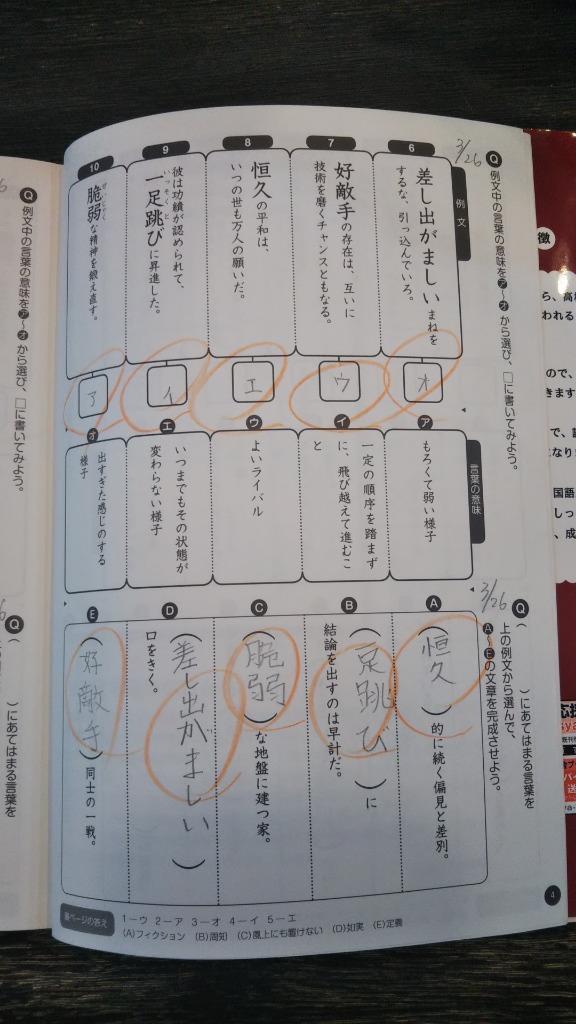 3/26
Q 例文中の言葉の意味をア~オから選び、□に書いてみよう。
例文
6
差し出がましいまねを
するな、引っ込んでいろ。
7
好敵手の存在は、互いに
技術を磨くチャンスともなる。
8
恒久の平和は、
いつの世も万人の願いだ。
9
彼は功績が認められて、
一足跳びに昇進した。
いっそくと
10
脆弱な精神を鍛え直す。
ぜいじゃく
オ
ウ
エ
イ
ア
言葉の意味
ア
もろくて弱い様子
イ
一定の順序を踏まず
に、飛び越えて進むこ
と
ウ
よいライバル
エ
いつまでもその状態が
変わらない様子
オ
出すぎた感じのする
様子
3/26
Q ( )にあてはまる言葉を
上の例文から選んで、
A~Eの文章を完成させよう。
A
(恒久)的に続く偏見と差別。
B
(一足跳び)に
結論を出すのは早計だ。
C
(脆弱)な地盤に建つ家。
D
(差し出がましい)
口をきく。
E
(好敵手)同士の一戦。
4
前ページの答え
1―ウ 2―ア 3―オ 4―イ 5―エ
(A)フィクション (B)周知 (C)風上にも置けない (D)如実 (E)定義
Q 例文中の言葉の意味をア~オから選び、□に書いてみよう。
Q ( )にあてはまる言葉を
徴